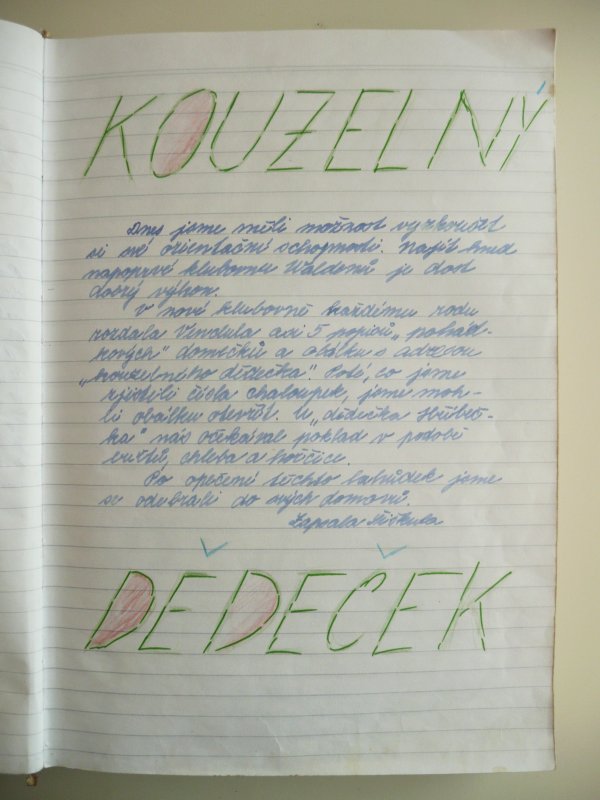 KOUZELNÝ
Dnes jsme měli možnost vyzkoušet
si své orientační schopnosti. Najít hned
napoprvé klubovnu Waldenů je dost
dobrý výkon.
V nové klubovně každému rodu
rozdala Vendula asi 5 popisů „pohád-
kových" domečků a obálku s adresou
„kouzelného dědečka". Poté, co jsme
zjistili čísla chaloupek, jsme moh-
li obálku otevřít. U „dědečka Hříbeč-
ka" nás očekával poklad v podobě
buřtů, chleba a hořčice.
Po opečení těchto lahůdek jsme
se odebrali do svých domovů.
Zapsala
DĚDEČEK